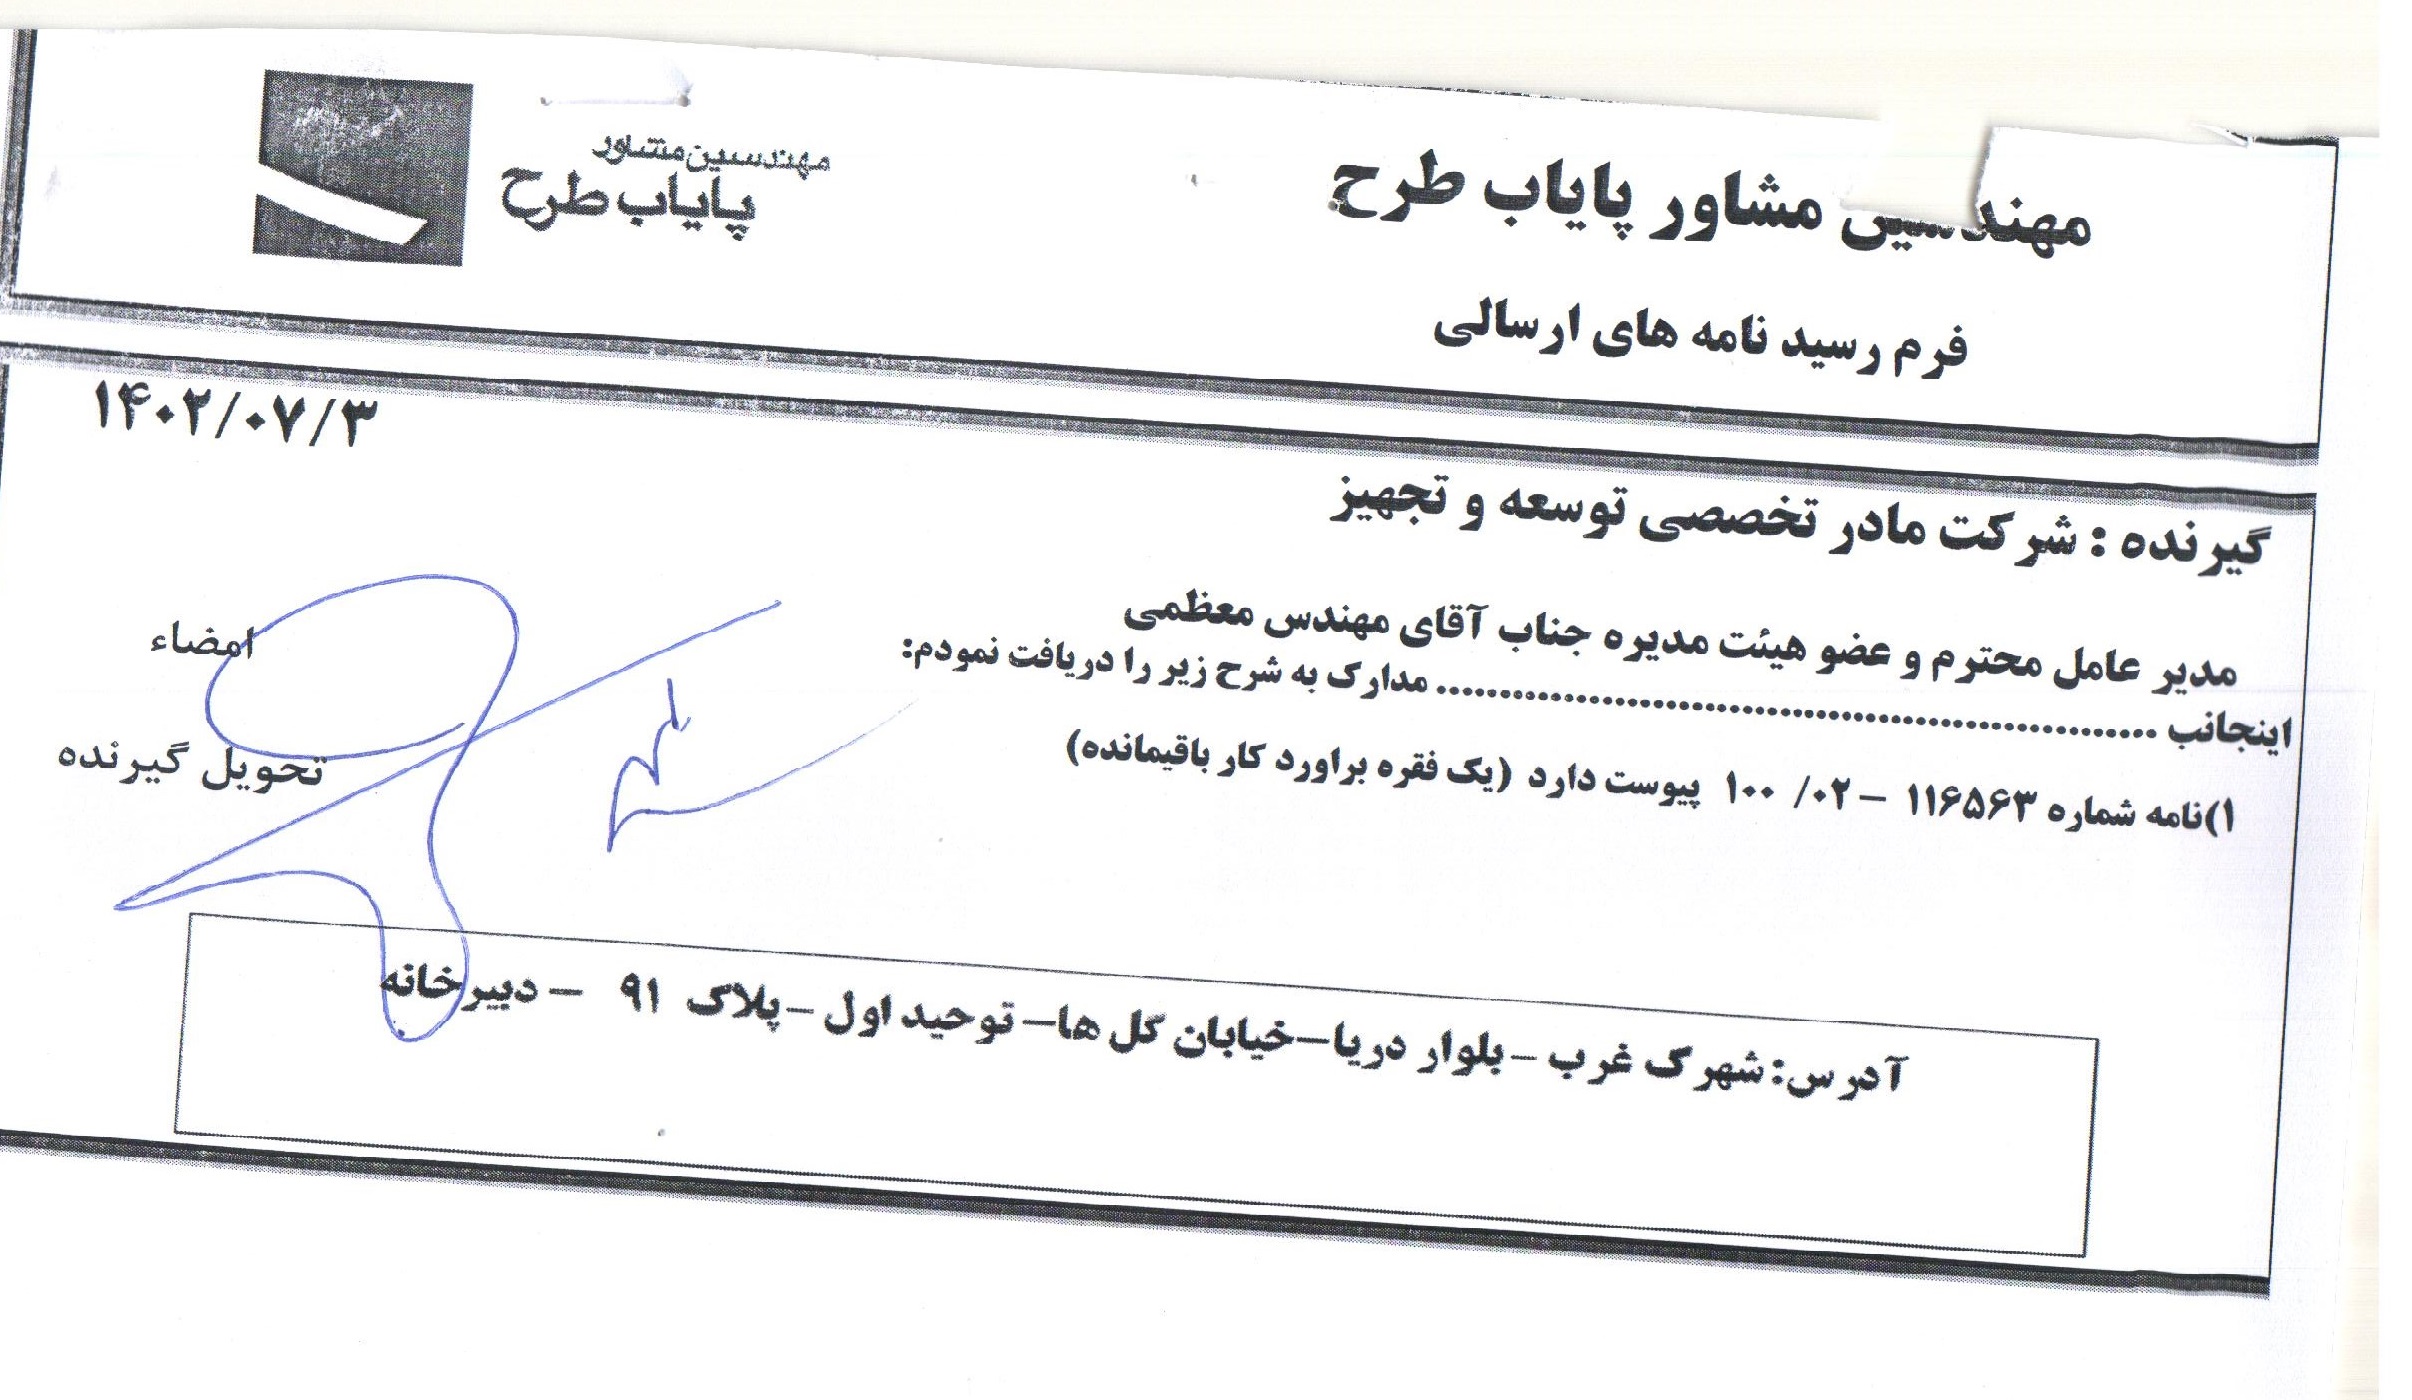 مهندسین مشاور پایاب طرح
مهندسین مشاور
پایاب طرح
فرم رسید نامه های ارسالی
۱۴۰۲/۰۷/۳
گیرنده : شرکت مادر تخصصی توسعه و تجهیز
مدیر عامل محترم و عضو هیئت مدیره جناب آقای مهندس معظمی
اینجانب .......................................................... مدارک به شرح زیر را دریافت نمودم:
۱)نامه شماره ۱۱۶۵۶۳ – ۰۲/ ۱۰۰ پیوست دارد (یک فقره براورد کار باقیمانده)
امضاء
تحویل گیرنده
آدرس: شهرک غرب – بلوار دریا – خیابان گل ها – توحید اول – پلاک ۹۱ – دبیرخانه